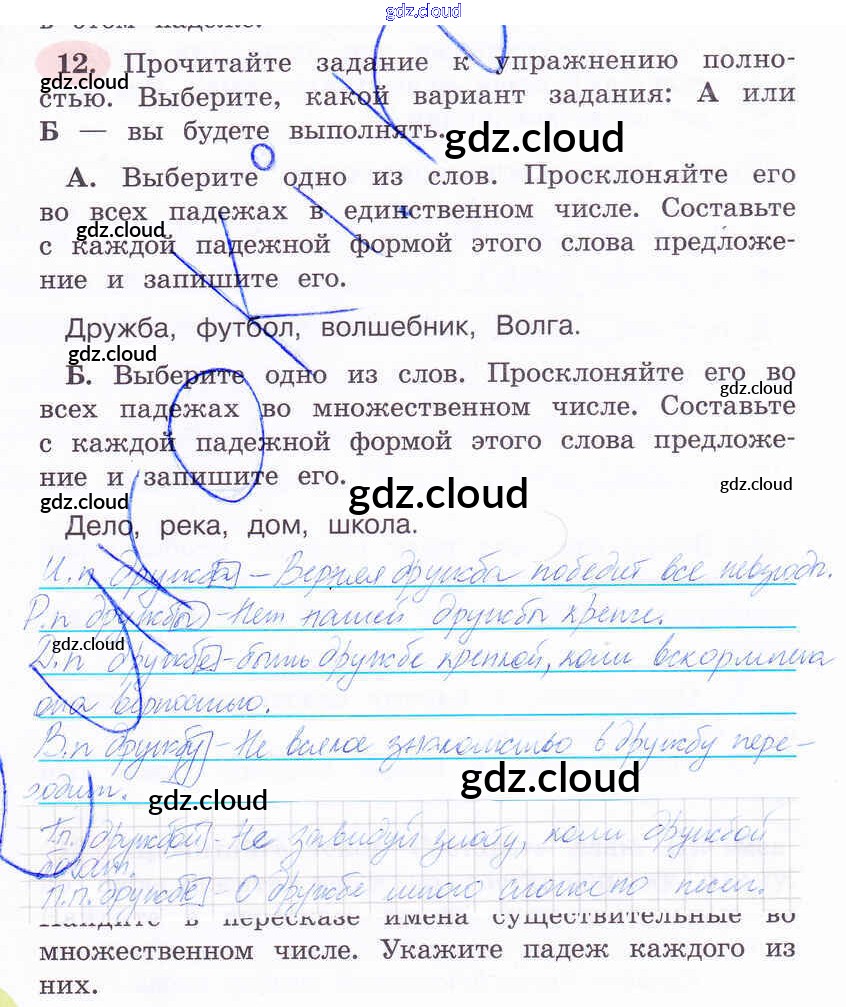 gdz.cloud
в этом падеже.
12. Прочитайте задание к упражнению полно-
gdz.cloud
стью. Выберите, какой вариант задания: А или
Б — вы будете выполнять.
gdz.cloud
А. Выберите одно из слов. Просклоняйте его
во всех падежах в единственном числе. Составьте
gdz.cloud
с каждой падежной формой этого слова предложе-
ние и запишите его.
Дружба, футбол, волшебник, Волга.
gdz.cloud
Б. Выберите одно из слов. Просклоняйте его во
gdz.cloud
всех падежах во множественном числе. Составьте
с каждой падежной формой этого слова предложе-
ние и запишите его.
gdz.cloud
gdz.cloud
gdz.cloud
Дело, река, дом, школа.
И.п дружба – Верная дружба победит все невзгоды.
Р.п дружбы – Нет нашей дружбы крепче.
gdz.cloud
Д.п дружбе – быть дружбе крепкой, коли вскормлена
она верностью.
В.п дружбу – Не всякое знакомство в дружбу пере-
ходит.
gdz.cloud
gdz.cloud
Тп. дружбой – Не завидуй злату, коли дружбой
богат.
П.п. дружбе – О дружбе много сложено песен.
Найдите в пересказе имена существительные во
множественном числе. Укажите падеж каждого из
них.